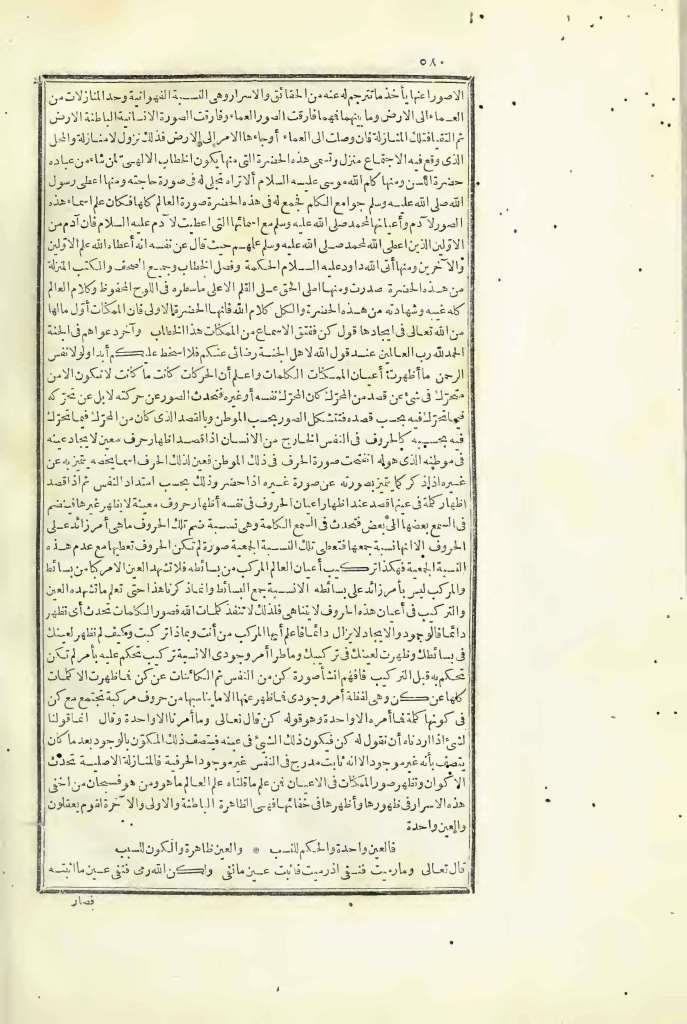 ٥٨٠
الامور اعنها يأخذ ما تترجم له عنه من الحقائق والاسرار وهى النسبة الفهوانية وحد المنازلات من
العماء الى الارض وما بينهما فمهما فارقت الصور العماء وفارقت الصورة الانسانية الباطنة الارض
ثم التقيا فتلك المنازلة فان وصلت الى العماء أو جاءها الامر إلى الارض فذلك نزول لا منازلة والمحل
الذى وقع فيه الاجتماع منزل وتسمى هذه الحضرة التى منها يكون الخطاب الالهى لمن شاء من عباده
حضرة اللسن ومنها كلم الله موسى عليه السلام ألا تراه تجلى له فى صورة حاجته ومنها اعطى رسول
الله صلى الله عليه وسلم جوامع الكلم فجمع له فى هذه الحضرة صورة العالم كلها فكان علم اسماء هذه
الصور لآدم وأعيانها لمحمد صلى الله عليه وسلم مع اسمائها التى اعطيت لآدم عليه السلام فان آدم من
الاولين الذين اعطى الله لمحمد صلى الله عليه وسلم علمهم حيث قال عن نفسه انه أعطاه الله علم الاولين
والآخرين ومنها أتى الله داود عليه السلام الحكمة وفصل الخطاب وجميع الصحف والكتب المنزلة
من هذه الحضرة صدرت ومنها املى الحق على القلم الاعلى ما سطره فى اللوح المحفوظ وكلام العالم
كله غيبه وشهادته من هذه الحضرة والكل كلام الله فانها الحضرة الاولى فان الممكنات أول مالها
من الله تعالى فى ايجادها قول كن ففتق الاسماع من الممكنات هذا الخطاب وآخر دعواهم فى الجنة
الحمد لله رب العالمين عند قول الله لاهل الجنة رضائى عنكم فلا اسخط عليكم أبدا ولولا نفس
الرحمن ما أظهرت أعيان الممكنات الكلمات واعلم أن الحركات كانت ما كانت لا تكون الا من
متحرك فى شئ عن قصد من المحرك كان المحرك نفسه أو غيره فتحدث الصور عن حركته لا بل عن تحركه
فيما تحرك فيه بحسب قصده فتتشكل الصور بحسب الموطن وبالقصد الذى كان من المحرك فيما تحرك
فيه بحسبه كالحروف فى النفس الخارج من الانسان اذا قصد اظهار حرف معين لايجاد عينه
فى موطنه الذى هو له انفتحت صورة الحرف فى ذلك الموطن فعين لذلك الحرف اسما يخصه يتميز به عن
غيره اذا ذكر كما تميز بصورته عن صورة غيره اذا حضر وذلك بحسب امتداد النفس ثم اذا قصد
اظهار كلمة فى عينها قصد عند اظهار اعيان الحروف فى نفسه أظهار حروف معينة لا يظهر غيرها فينضم
فى السمع بعضها الى بعض فتحدث فى السمع الكلمة وهى نسبة ضم تلك الحروف ما هى أمر زائد على
الحروف إلا انها نسبة جمعها فتعطى تلك النسبة الجمعية صورة لم تكن الحروف تعطيها مع عدم هذه
النسبة الجمعية فهكذا تركيب أعيان العالم المركب من بسائطه فلا تشهد العين الا مركبا من بسائط
والمركب ليس بأمر زائد على بسائطه الا نسبة جمع البسائط وانما ذكرنا هذا حتى تعلم ما تشهده العين
والتركيب فى أعيان هذه الحروف لا يتناهى فلذلك لا تنفذ كلمات الله فصور الكلمات تحدث أى تظهر
دائما فالوجود والايجاد لا يزال دائما فاعلم أيها المركب من أنت وبماذا تركبت وكيف لم تظهر لعينك
فى بسائطك وظهرت لعينك فى تركيبك وما طرأ أمر وجودى الا نسبة تركيب تحكم عليه بأمر لم تكن
تحكم به قبل التركيب فافهم انشأ صورة كن من النفس ثم الكائنات عن كن فما ظهرت الا كلمات
كلها عن كن وهى لفظة أمر وجودى فما ظهر عنها الا ما يناسبها من حروف مركبة تجتمع مع كن
فى كونها كلمة فما أمره الا واحدة وهو قوله كن قال تعالى وما أمرنا الا واحدة وقال انما قولنا
لشئ اذا اردناه أن نقول له كن فيكون ذلك الشئ فى عينه فيتصف ذلك المكون بالوجود بعد ما كان
يتصف بأنه غير موجود الا انه ثابت مدرج فى النفس غير موجود الحرفية فالمنازلة الاصلية تحدث
الاكوان وتظهر صور الممكنات فى الاعيان فمن علم ما قلناه علم العالم ما هو ومن هو فسبحان من اخفى
هذه الاسرار فى ظهورها وأظهرها فى خفائها فهى الظاهرة الباطنة والاولى والآخرة لقوم يعقلون
والعين واحدة
فالعين واحدة والحكم للنسب * والعين ظاهرة والكون للسبب
قال تعالى وما رميت فنفى اذ رميت فاثبت عين ما نفى ولكن الله رمى فنفى عين ما اثبته
فصار